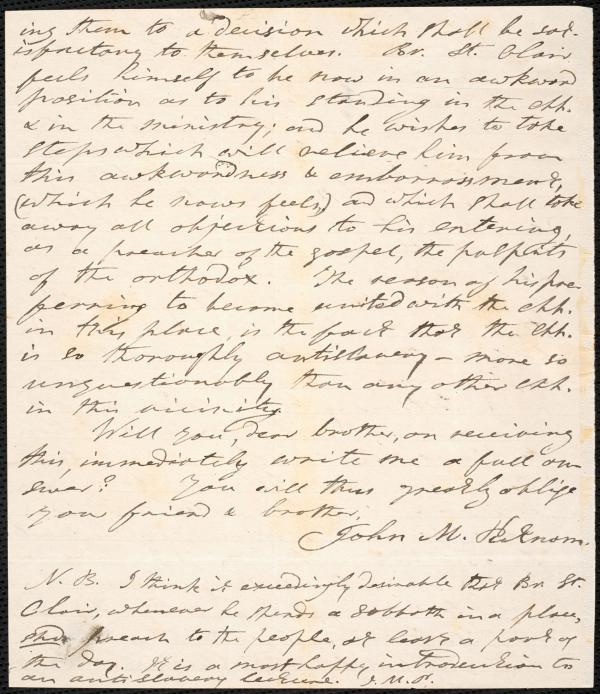 ing them to a decision which shall be sat-
isfactory to themselves. Br. St. Clair
feels himself to be now in an awkward
position as to his standing in the chh.
& in the ministry; and he wishes to take
steps which will relieve him from
this awkwardness & embarrassment,
(which he now feels,) and which shall take
away all objections to his entering,
as a preacher of the gospel, the pulpits
of the orthodox. The reason of his pre-
ferring to become united with the chh.
in this place, is the fact that the chh.
is so thoroughly antislavery – more so
unquestionably than any other chh.
in this vicinity.
Will you, dear brother, on receiving
this, immediately write me a full an-
swer? You will thus greatly oblige
your friend & brother,
John M. Putnam.
N. B. I think it exceedingly desirable that Br. St.
Clair, whenever he spends a Sabbath in a place,
preach to the people, at least a part of
the day. It is a most happy introduction to
an antislavery lecture. J. M. P.